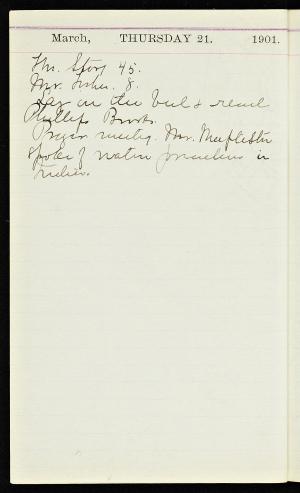 March, THURSDAY 21. 1901.
Thr. Story 45.
Mr. 8.
Lay on the bed & read
Phillips Brooks.
Prayer meeting. Mr.
spoke of native preachers in
India.